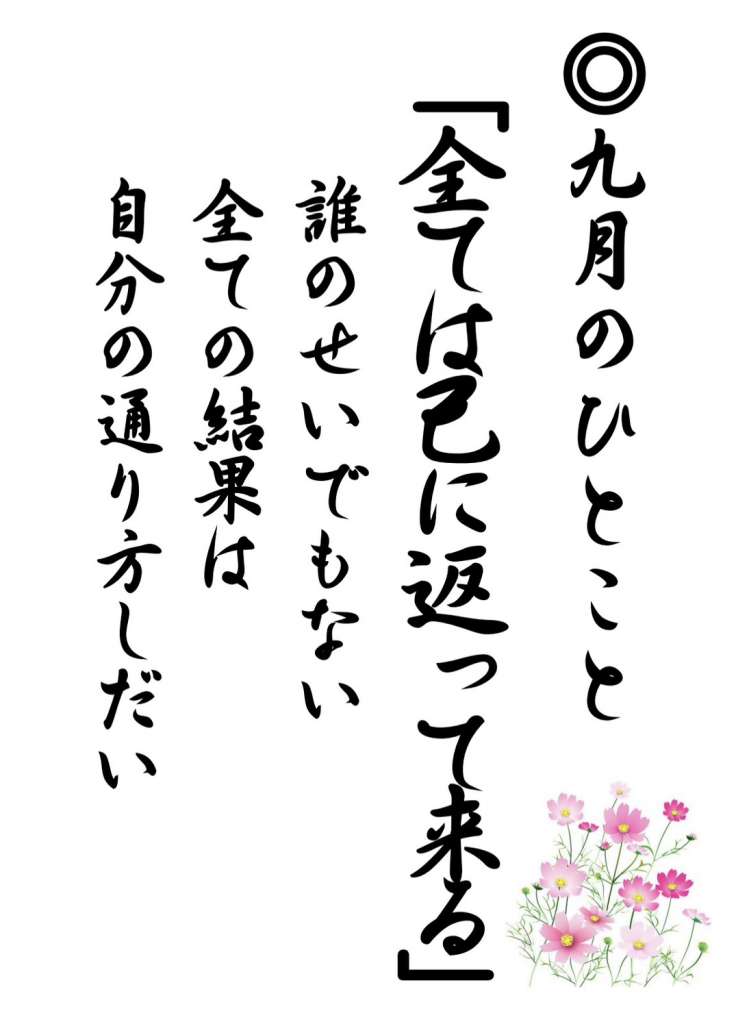 ◎九月のひとこと
「全ては己に返って来る」
誰のせいでもない
全ての結果は
自分の通り方しだい